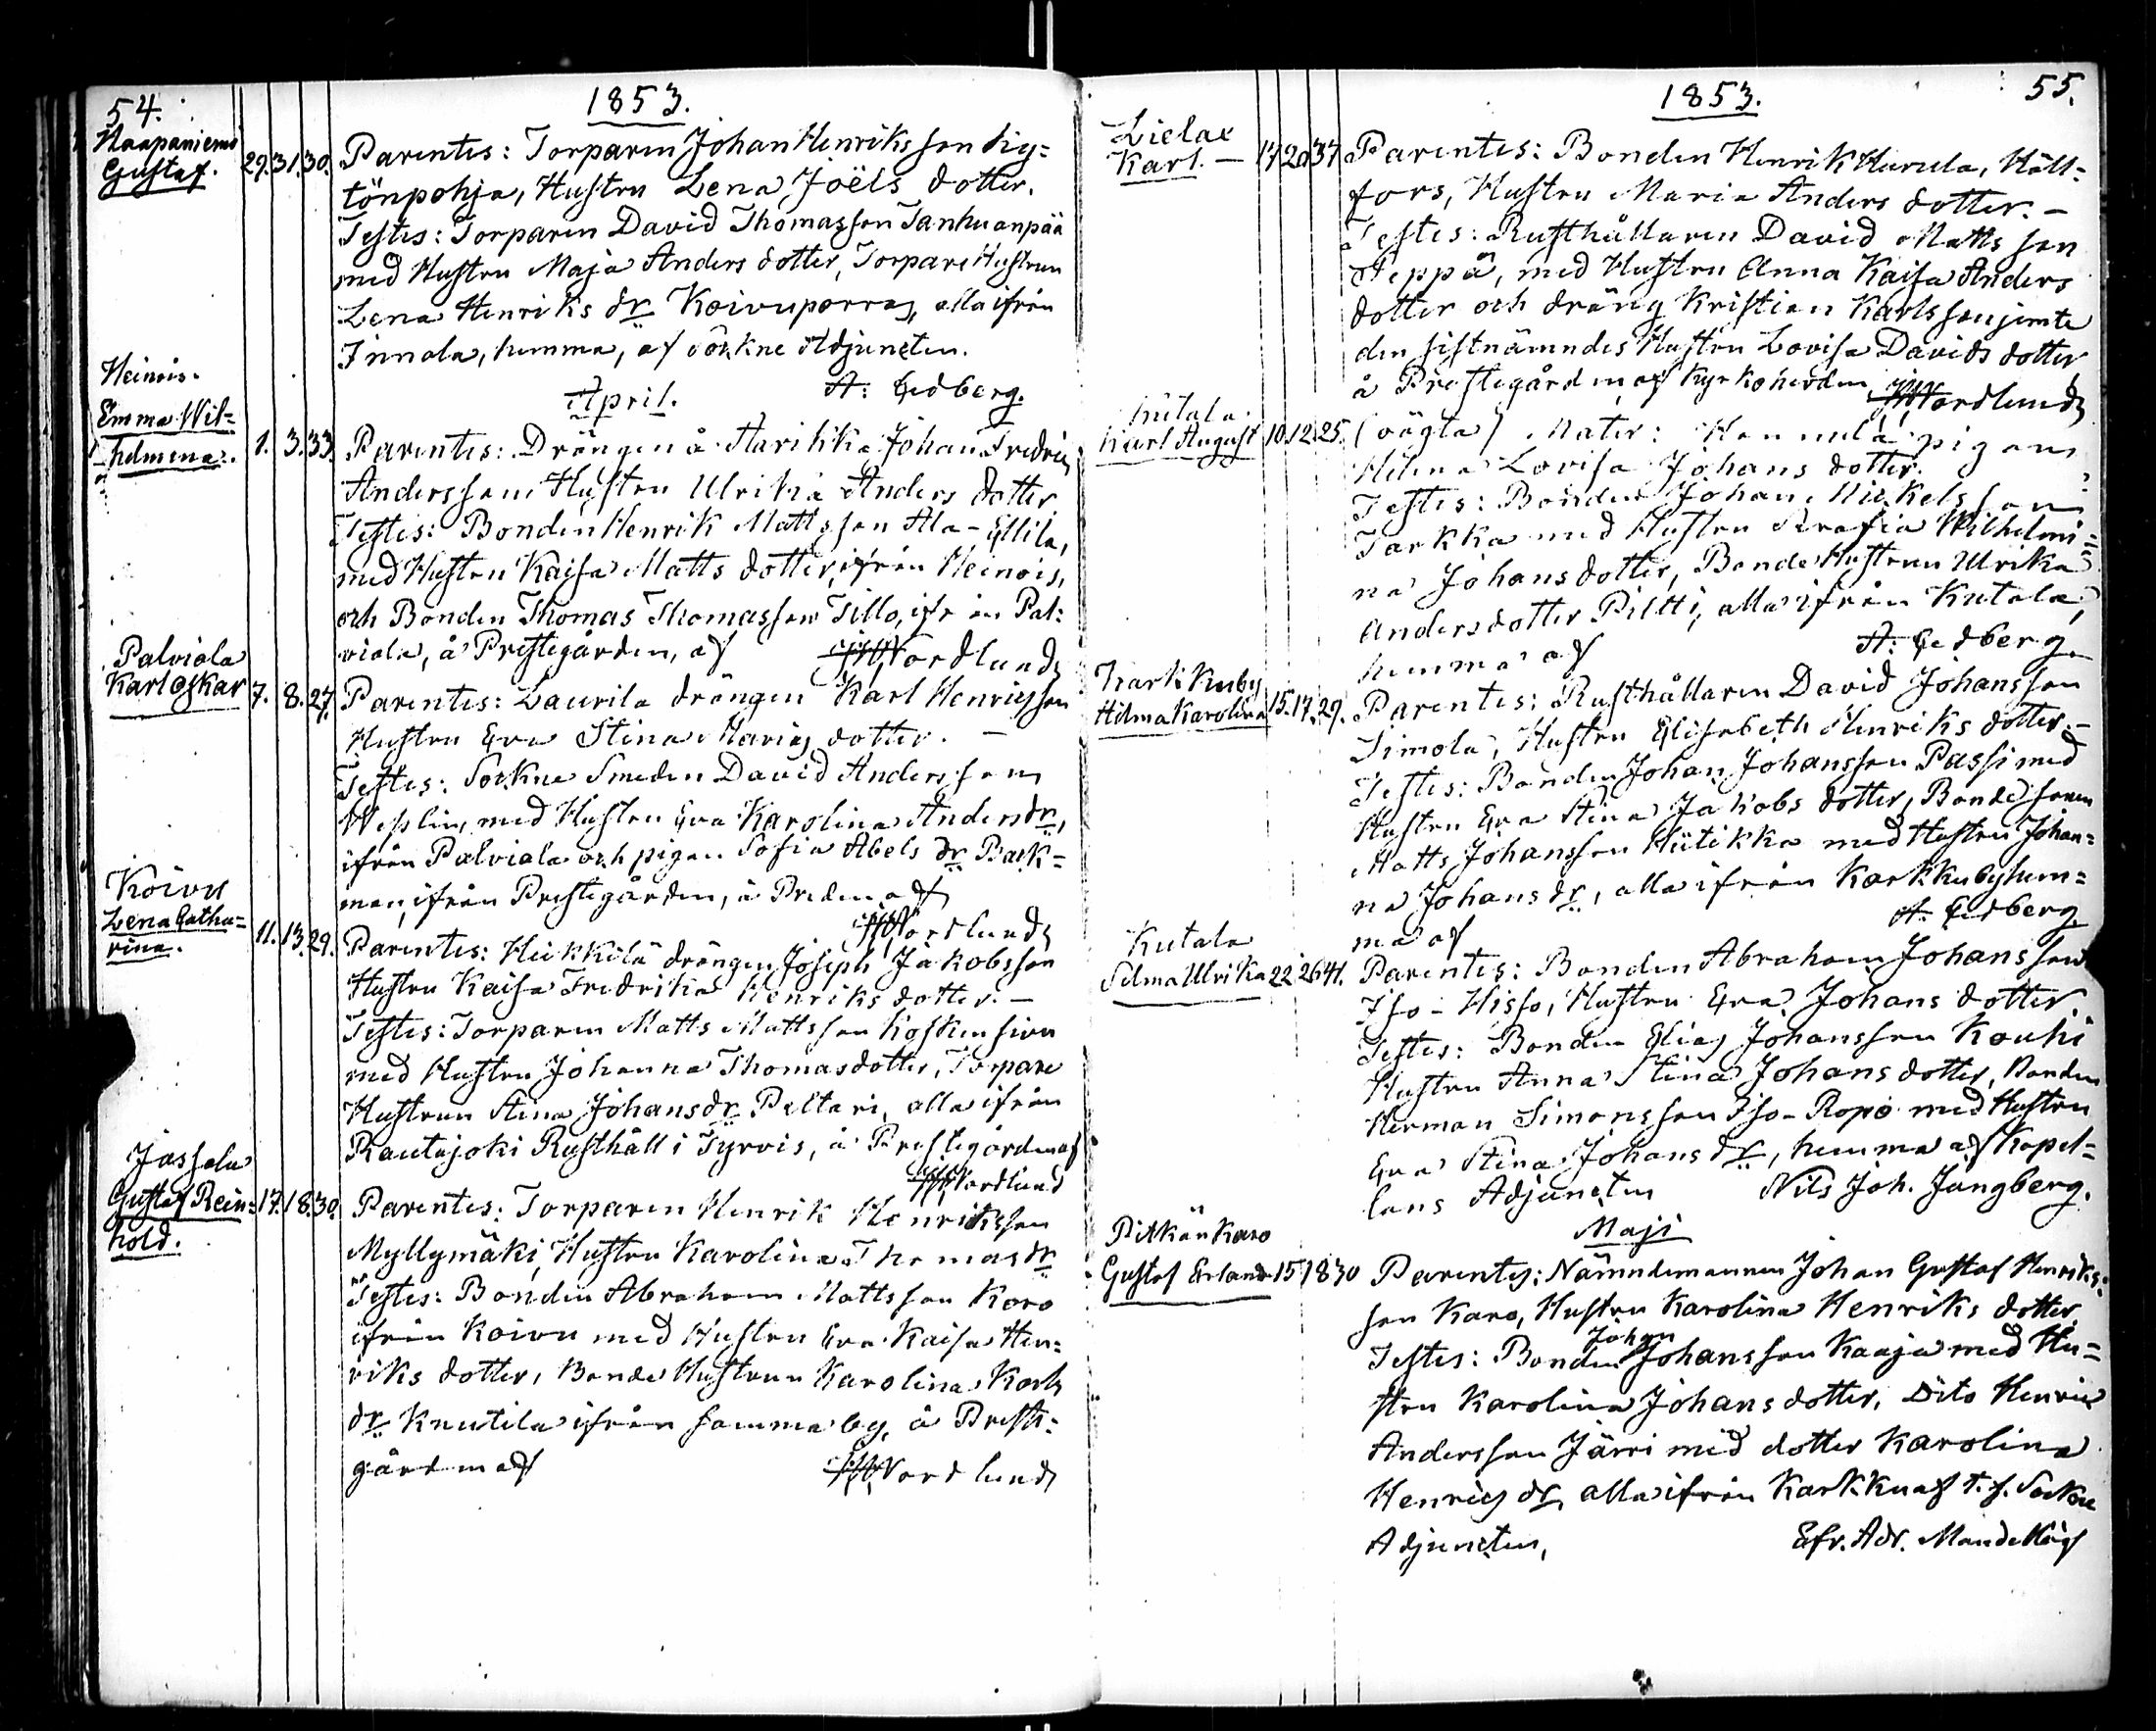 54.
1853.
Haapaniemi
Gustaf. 29. 31. 30. Parentes: Torparen Johan Henriksson
tönpohja, Hustru Lena Joëls dotter.
Testes: Torparen David Thomasson Tanhuanpää
med Hustru Maja Anders dotter, Torpare Hustrun
Lena Henriks dr Koivuporras, alla ifrån
Innala, hemma, af Sockne Adjuncten.
A: Cedberg.
April.
Heinois.
Emma Wil=
helmina. 1. 3. 33. Parentes: Drängen å Harikka Johan Fredric
Andersson, Hustru Ulrika Anders dotter
Testes: Bonden Henrik Mattsson Ala-Ellilä,
med Hustru Kaisa Matts dotter, ifrån Heinois,
och Bonden Thomas Thomasson Tillo, ifrån Pal=
viala, å Prestegården, af Nordlund
Palviala
Karl Oskar 7. 8. 27. Parentes: Laurila drängen Karl Henricsson
Hustru Eva Stina Marias dotter. –
Testes: Sockne Smeden David Andersson
Wesslin, med Hustru Eva Karolina Anders dr,
ifrån Palviala och pigan Sofia Abels dr Back=
man, ifrån Prestegården, å Preden af
Nordlund
Koivu
Lena Catha=
rina. 11. 13. 29. Parentes: Heikkilä drängen Joseph Jakobsson
Hustru Kaisa Fredrika Henriks dotter. –
Testes: Torparen Matts Mattsson Koskensivu
med Hustru Johanna Thomasdotter, Torpare
Hustrun Stina Johansdr Peltari, alla ifrån
Rautajoki Rusthåll i Tyrvis, å Prestegården af
Nordlund
Jassala
Gustaf Rein=
hold. 17. 18. 30. Parentes: Torparen Henrik Henriksson
Myllymäki, Hustru Karolina Thomas dr
Testes: Bonden Abraham Mattsson Koro
ifrån Koivu med Hustru Eva Kaisa Hen=
riks dotter, Bonde Hustrun Karolina Karls
dr Knutila ifrån samma by, å Preste=
gården af Nordlund
1853.
55.
Lielax
Karl. – 17 20 37 Parentes: Bonden Henrik Hurula, Häll=
fors, Hustru Maria Anders dotter. –
Testes: Rusthållaren David Mattsson
Seppä, med Hustru Anna Kaisa Anders
dotter och dräng Kristian Karlsson jemte
den sistnämndes Hustru Lovisa Davids dotter
å Prestegården af Kyrkoherden Nordlund
Kutala.
Karl August 10. 12. 25. (oägta) Mater: Hannula pigan
Helena Lovisa Johans dotter.
Testes: Bonden Johan Mickelsson
Tarkka med Hustru Serafia Wilhelmi=
na Johansdotter, Bonde Hustrun Ulrika
Andersdotter Piltti, alla ifrån Kutala,
hemma af A: Cedberg.
Karkkuby
Hilma Karolina 15. 17. 29. Parentes: Rusthållaren David Johansson
Simola, Hustru Elisabeth Henriks dotter. –
Testes: Bonden Johan Johansson Passi med
Hustru Eva Stina Jakobs dotter, Bondesonen
Matts Johansson Hiitikka med Hustru Johan=
na Johans dr, alla ifrån Karkkuby hem=
ma af A. Cedberg
Kutala
Selma Ulrika 22 26 41. Parentes: Bonden Abraham Johansson
Iso-Hisso, Hustru Eva Johans dotter.
Testes: Bonden Elias Johansson Kouhi
Hustru Anna Stina Johans dotter, Bonden
Herman Simonsson Iso-Ropo med Hustru
Eva Stina Johans dr, hemma af Kapel=
lans Adjuncten Nils Joh. Jungberg.
Maji
Pitkänkaro
Gustaf Erland 15 18 30 Parentes: Nämndemannen Johan Gustaf Henriks=
son Karo, Hustru Karolina Henriks dotter.
Testes: Bonden Johan Johansson Kaaja med Hu=
stru Karolina Johans dotter, Dito Henric
Andersson Järri med dotter Karolina
Henrics dr, alla ifrån Karkku af t. f. Sockne
Adjuncten, Efr. Adr. Mandellöf